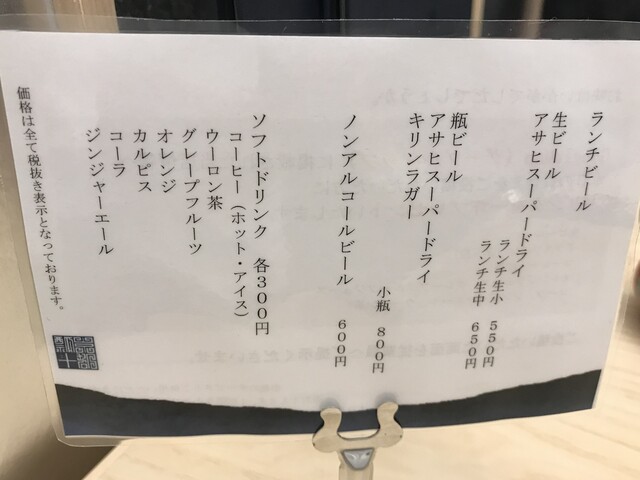 ランチビール
生ビール
アサヒスーパードライ
ランチ生小 550円
ランチ生中 650円
瓶ビール
アサヒスーパードライ
キリンラガー
小瓶 800円
ノンアルコールビール 600円
ソフトドリンク 各300円
コーヒー(ホット・アイス)
ウーロン茶
グレープフルーツ
オレンジ
カルピス
コーラ
ジンジャーエール
価格は全て税抜き表示となっております。